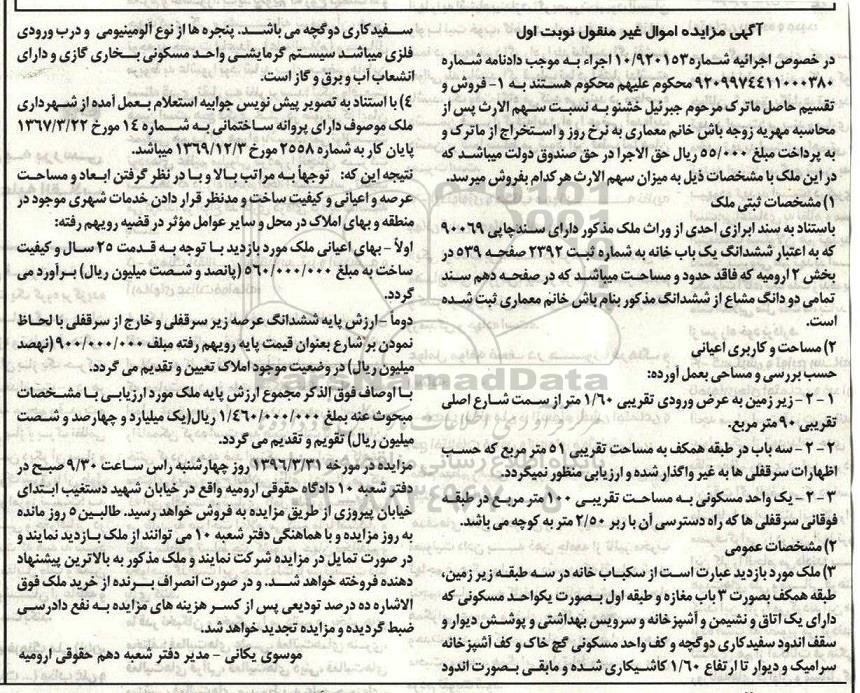 آگهی مزایده اموال غیر منقول نوبت اول
در خصوص اجرائیه شماره ۱۰/۹۲۰۱۵۳ اجراء به موجب دادنامه شماره
۹۲۰۹۹۷۴۴۱۱۰۰۰۳۸۰ محکوم علیهم محکوم هستند به ۱- فروش و
تقسیم حاصل ماترک مرحوم جبرئیل خشنو به نسبت سهم الارث پس از
محاسبه مهریه زوجه باش خانم معماری به نرخ روز و استخراج از ماترک و
به پرداخت مبلغ ۵۵/۰۰۰ ریال حق الاجرا در حق صندوق دولت میباشد که
در این ملک با مشخصات ذیل به میزان سهم الارث هر کدام بفروش میرسد.
۱) مشخصات ثبتی ملک
باستناد به سند ابرازی احدی از وراث ملک مذکور دارای سندچاپی ۹۰۰۶۹
که به اعتبار ششدانگ یک باب خانه به شماره ثبت ۲۳۹۲ صفحه ۵۳۹ در
بخش ۲ ارومیه که فاقد حدود و مساحت میباشد که در صفحه دهم سند
تمامی دو دانگ مشاع از ششدانگ مذکور بنام باش خانم معماری ثبت شده
است.
۲) مساحت و کاربری اعیانی
حسب بررسی و مساحی بعمل آورده:
۱-۲- زیر زمین به عرض ورودی تقریبی ۱/۶۰ متر از سمت شارع اصلی
تقریبی ۹۰ متر مربع.
۲-۲- سه باب در طبقه همکف به مساحت تقریبی ۵۱ متر مربع که حسب
اظهارات سرقفلی ها به غیر واگذار شده و ارزیابی منظور نمیگردد.
۳-۲- یک واحد مسکونی به مساحت تقریبی ۱۰۰ متر مربع در طبقه
فوقانی سرقفلی ها که راه دسترسی آن با ربر ۲/۵۰ متر به کوچه می باشد.
۲) مشخصات عمومی
۳) ملک مورد بازدید عبارت است از سکباب خانه در سه طبقه زیر زمین،
طبقه همکف بصورت ۳ باب مغازه و طبقه اول بصورت یکواحد مسکونی که
دارای یک اتاق و نشیمن و آشپزخانه و سرویس بهداشتی و پوشش دیوار و
سقف اندود سفیدکاری دوگچه و کف واحد مسکونی گچ خاک و کف آشپزخانه
سرامیک و دیوار تا ارتفاع ۱/۶۰ کاشیکاری شده و مابقی بصورت اندود
سفیدکاری دوگچه می باشد. پنجره ها از نوع آلومینیومی و درب ورودی
فلزی میباشد سیستم گرمایشی واحد مسکونی بخاری گازی و دارای
انشعاب آب و برق و گاز است.
۴) با استناد به تصویر پیش نویس جوابیه استعلام بعمل آمده از شهرداری
ملک موصوف دارای پروانه ساختمانی به شماره ۱۴ مورخ ۱۳۶۷/۳/۲۲
پایان کار به شماره ۲۵۵۸ مورخ ۱۳۶۹/۱۲/۳ میباشد.
نتیجه این که: توجهاً به مراتب بالا و با در نظر گرفتن ابعاد و مساحت
عرصه و اعیانی و کیفیت ساخت و مدنظر قرار دادن خدمات شهری موجود در
منطقه و بهای املاک در محل و سایر عوامل مؤثر در قضیه رویهم رفته:
اولاً - بهای اعیانی ملک مورد بازدید با توجه به قدمت ۲۵ سال و کیفیت
ساخت به مبلغ ۵۶۰/۰۰۰/۰۰۰ (پانصد و شصت میلیون ریال) برآورد می
گردد.
دوماً - ارزش پایه ششدانگ عرصه زیر سرقفلی و خارج از سرقفلی با لحاظ
نمودن بر شارع بعنوان قیمت پایه رویهم رفته مبلف ۹۰۰/۰۰۰/۰۰۰ (نهصد
میلیون ریال) در وضعیت موجود املاک تعیین و تقدیم می گردد.
با اوصاف فوق الذکر مجموع ارزش پایه ملک مورد ارزیابی با مشخصات
مبحوث عنه بمبلغ ۱/۴۶۰/۰۰۰/۰۰۰ ریال(یک میلیارد و چهارصد و شصت
میلیون ریال) تقویم و تقدیم می گردد.
مزایده در مورخه ۱۳۹۶/۳/۳۱ روز چهارشنبه راس ساعت ۹/۳۰ صبح در
دفتر شعبه ۱۰ دادگاه حقوقی ارومیه واقع در خیابان شهید دستغیب ابتدای
خیابان پیروزی از طریق مزایده به فروش خواهد رسید. طالبین ۵ روز مانده
به روز مزایده و با هماهنگی دفتر شعبه ۱۰ می توانند از ملک بازدید نمایند و
در صورت تمایل در مزایده شرکت نمایند و ملک مذکور به بالاترین پیشنهاد
دهنده فروخته خواهد شد. و در صورت انصراف برنده از خرید ملک فوق
الاشاره ده درصد تودیعی پس از کسر هزینه های مزایده به نفع دادرسی
ضبط گردیده و مزایده تجدید خواهد شد.
موسوی یکانی - مدیر دفتر شعبه دهم حقوقی ارومیه
ParsNamadData